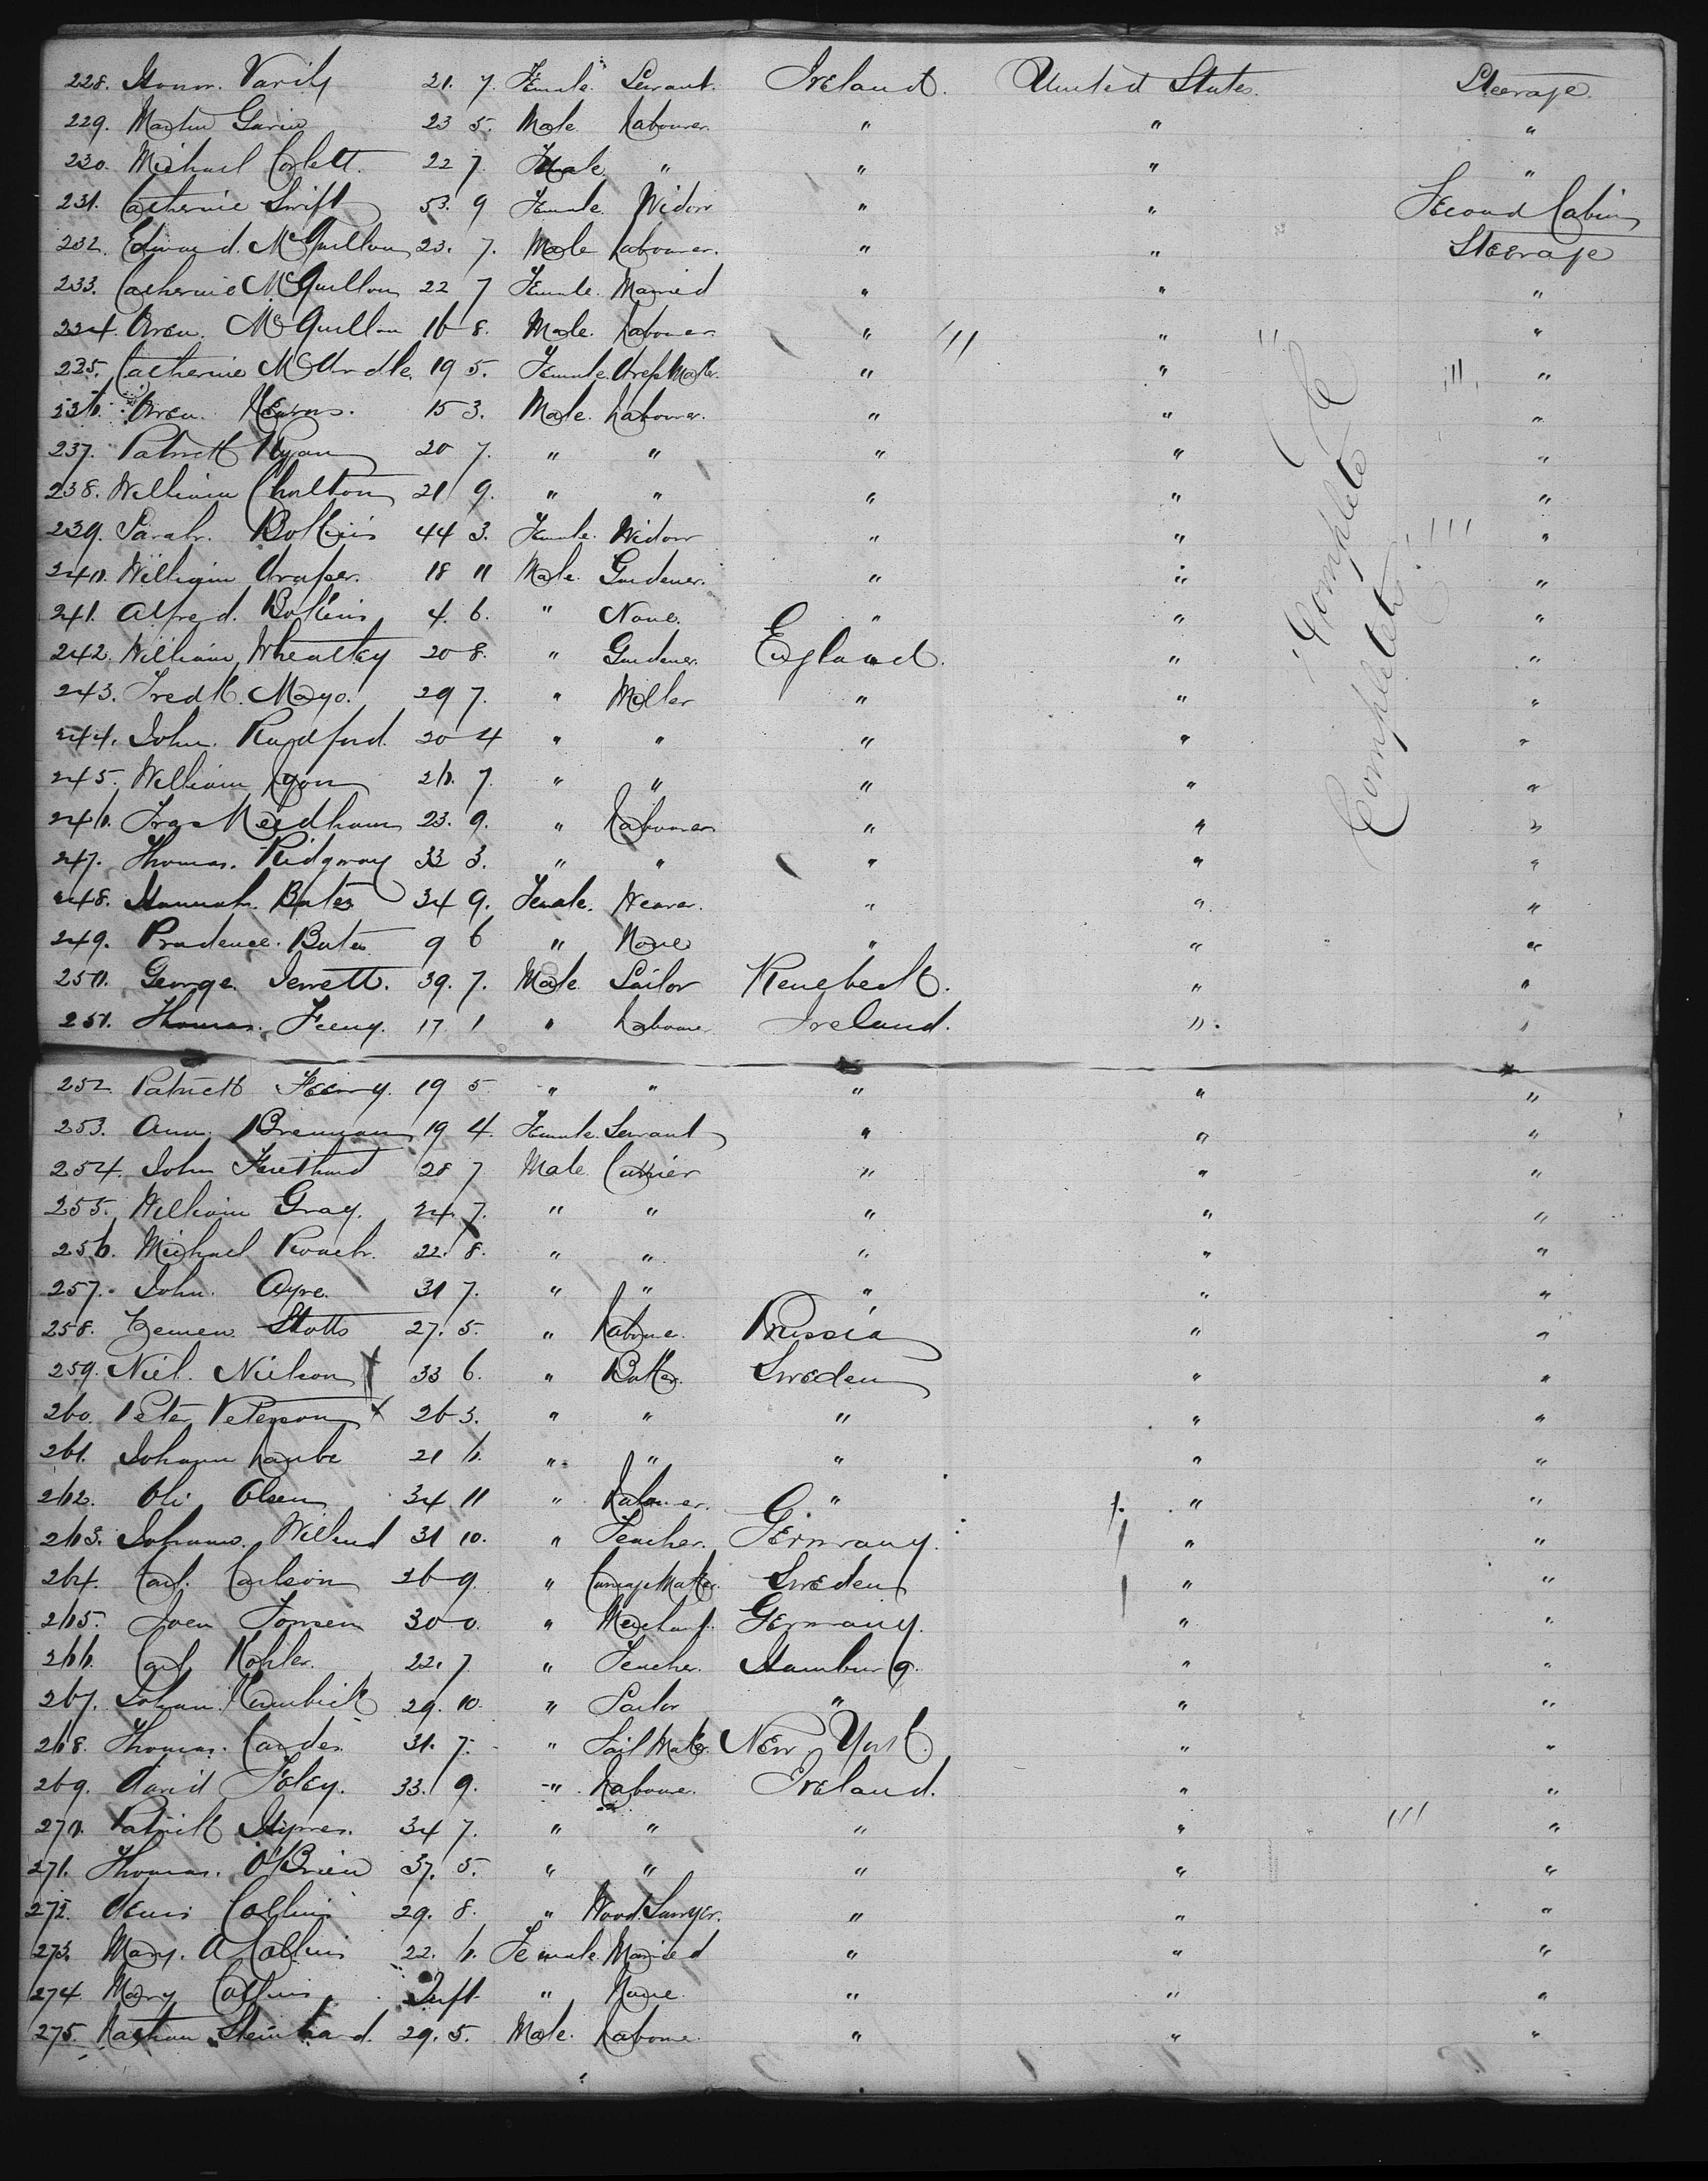 228. Honor. Varily 21. 7. Female. Servant. Ireland. United States. Steerage.
229. Martin Gavin 23 5. Male Labourer. " " "
230. Michael Corlett. 22 7. Male " " " "
231. Catherine Swift 53. 9 Female. Widow " " Second Cabin
232. Edward. McQuillan 23. 7. Male Labourer. " " Steerage
233. Catherine McQuillan 22 7 Female. Married " " "
234. Owen. McQuillan 16 8. Male. Labourer " " "
235. Catherine McArdle. 19 5. Female. Dress Maker. " " "
236. Owen. Kearns. 15 3. Male. Labourer. " " "
237. Patrick Ryan 20 7. " " " " "
238. William Charlton 21 9. " " " " "
239. Sarah. Botkins 44 3. Female. Widow " " "
240. William Draper. 18 11 Male. Gardener. " " "
241. Alfred. Botkins 4. 6. " None. " " "
242. William Wheatley 20 8. " Gardener. England. " "
243. Fredk. Mayo. 29 7. " Miller " " "
244. John. Rudford. 20 4 " " " " "
245. William Lyon 26. 7. " " " " "
246. Fras Needham 23. 9. " Labourer " " "
247. Thomas. Ridgway 33 3. " " " " "
248. Hannah. Bates 34 9. Female. Weaver. " " "
249. Prudence. Bates 9 6 " None " " "
250. George. Jewett. 39. 7. Male Sailor Kenebeck. " "
251. Thomas. Feeny. 17 1 " Laboure Ireland. " "
252 Patrick Feeny. 19 5 " " " " "
253. Ann. Brennan 19 4. Female. Servant " " "
254. John 28 7 Male Currier " " "
255. William Gray. 24. 7. " " " " "
256. Michael Roach. 22. 8. " " " " "
257. John. Ayre. 31 7. " " " " "
258. Stotts 27. 5. " Laboure. Prussia " "
259. Niel. Nielson 33 6. " Baker. Sweden " "
260. Peter Peterson x 26 3. " " " " "
261. Johann Laube 21 6. " " " " "
262. Oli Olsen 34 11 " Labourer. " " "
263. Johann. Wilund 31 10. " Teacher. Germany. " "
264. Carl. Carlson 26 9 " Carriage Maker. Sweden " "
265. Joen Jonsen 30 0. " Merchant. Germany. " "
266. Carl Kohler. 22. 7 " Teacher. Hamburg. " "
267. Johan. 29. 10. " Sailor " " "
268. Thomas. Candes 31. 7. " Sail Maker. New York. " "
269. David Foley. 33. 9. " Laboure. Ireland. " "
270. Patrick Hymes. 34 7. " " " " "
271. Thomas. O'Brien 37. 5. " " " " "
272. Denis Collins 29. 8. " Wood. Sawyer. " " "
273. Mary. A Collins 22. 6. Female. Married " " "
274. Mary Collins Inft. " None. " " "
275. Nathan Steinhard. 29. 5. Male. Laboure. " " "
Complete
Complete